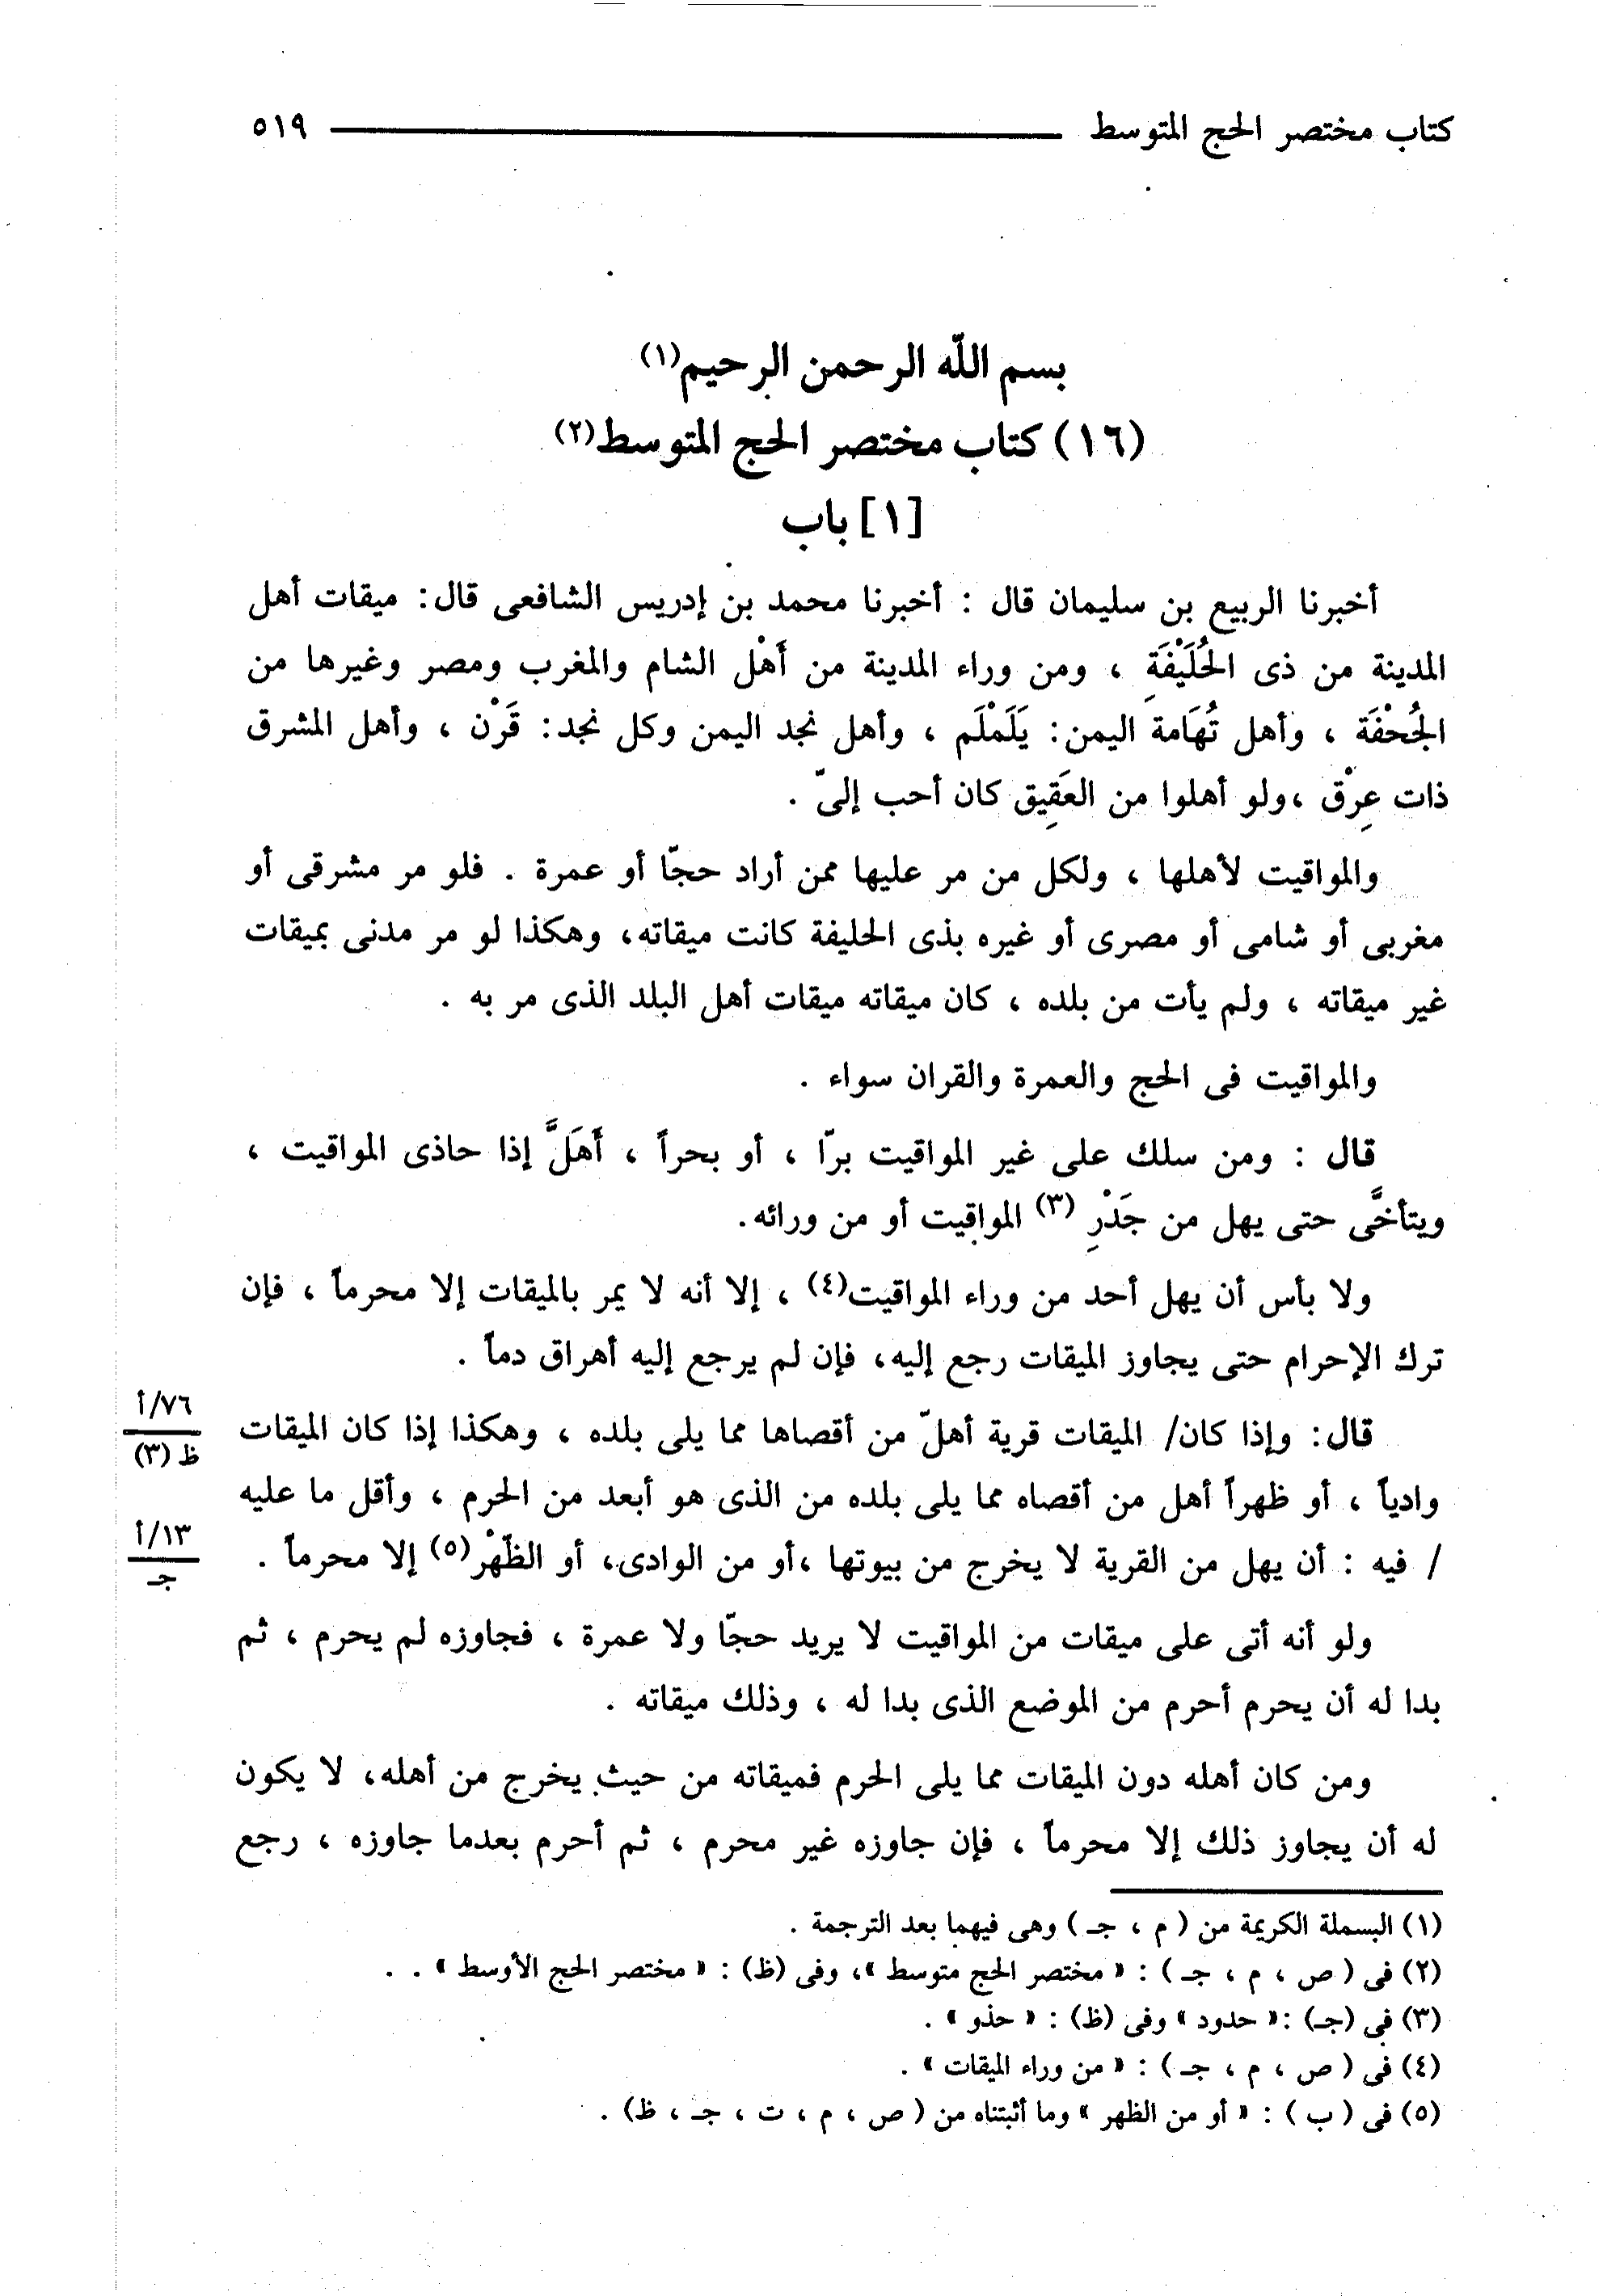 كتاب مختصر الحج المتوسط ٥١٩
بسم اللّه الرحمن الرحيم(١)
(١٦) كتاب مختصر الحج المتوسط(٢)
[١] باب
أخبرنا الربيع بن سليمان قال : أخبرنا محمد بن إدريس الشافعى قال: ميقات أهل
المدينة من ذى الحُلَيْفَةِ ، ومن وراء المدينة من أَهْل الشام والمغرب ومصر وغيرها من
الجُحْفَة ، وأهل تُهَامة اليمن: يَلَمْلَم ، وأهل نجد اليمن وكل نجد: قَرْن ، وأهل المشرق
ذات عِرْق ،ولو أهلوا من العَقِيق كان أحب إلىّ .
والمواقيت لأهلها ، ولكل من مر عليها ممن أراد حجّا أو عمرة . فلو مر مشرقى أو
مغربى أو شامى أو مصرى أو غيره بذى الحليفة كانت ميقاته، وهكذا لو مر مدنى بميقات
غير ميقاته ، ولم يأت من بلده ، كان ميقاته ميقات أهل البلد الذى مر به .
والمواقيت فى الحج والعمرة والقران سواء .
قال : ومن سلك على غير المواقيت برّا ، أو بحراً ، أَهَلَّ إذا حاذى المواقيت ،
ويتأخَّى حتى يهل من جَدْرِ (٣) المواقيت أو من ورائه.
ولا بأس أن يهل أحد من وراء المواقيت(٤) ، إلا أنه لا يمر بالميقات إلا محرماً ، فإن
ترك الإحرام حتى يجاوز الميقات رجع إليه، فإن لم يرجع إليه أهراق دماً .
٧٦/أ
ظ (٣)
قال: وإذا كان/ الميقات قرية أهلّ من أقصاها مما يلى بلده ، وهكذا إذا كان الميقات
وادياً ، أو ظهراً أهل من أقصاه مما يلى بلده من الذى هو أبعد من الحرم ، وأقل ما عليه
١٣/أ
جـ
/ فيه : أن يهل من القرية لا يخرج من بيوتها ،أو من الوادى، أو الظّهْر(٥) إلا محرماً .
ولو أنه أتى على ميقات من المواقيت لا يريد حجّا ولا عمرة ، فجاوزه لم يحرم ، ثم
بدا له أن يحرم أحرم من الموضع الذى بدا له ، وذلك ميقاته .
ومن كان أهله دون الميقات مما يلى الحرم فميقاته من حيث يخرج من أهله، لا يكون
له أن يجاوز ذلك إلا محرماً ، فإن جاوزه غير محرم ، ثم أحرم بعدما جاوزه ، رجع
(١) البسملة الكريمة من ( م ، جـ ) وهى فيهما بعد الترجمة .
(٢) فى ( ص ، م ، جـ ) : « مختصر الحج متوسط »، وفى (ظ) : « مختصر الحج الأوسط » . .
(٣) فى (جـ) :« حدود » وفى (ظ) : « حذو » .
(٤) فى ( ص ، م ، جـ ) : « من وراء الميقات » .
(٥) فى ( ب ) : « أو من الظهر » وما أثبتناه من ( ص ، م ، ت ، جـ ، ظ) .